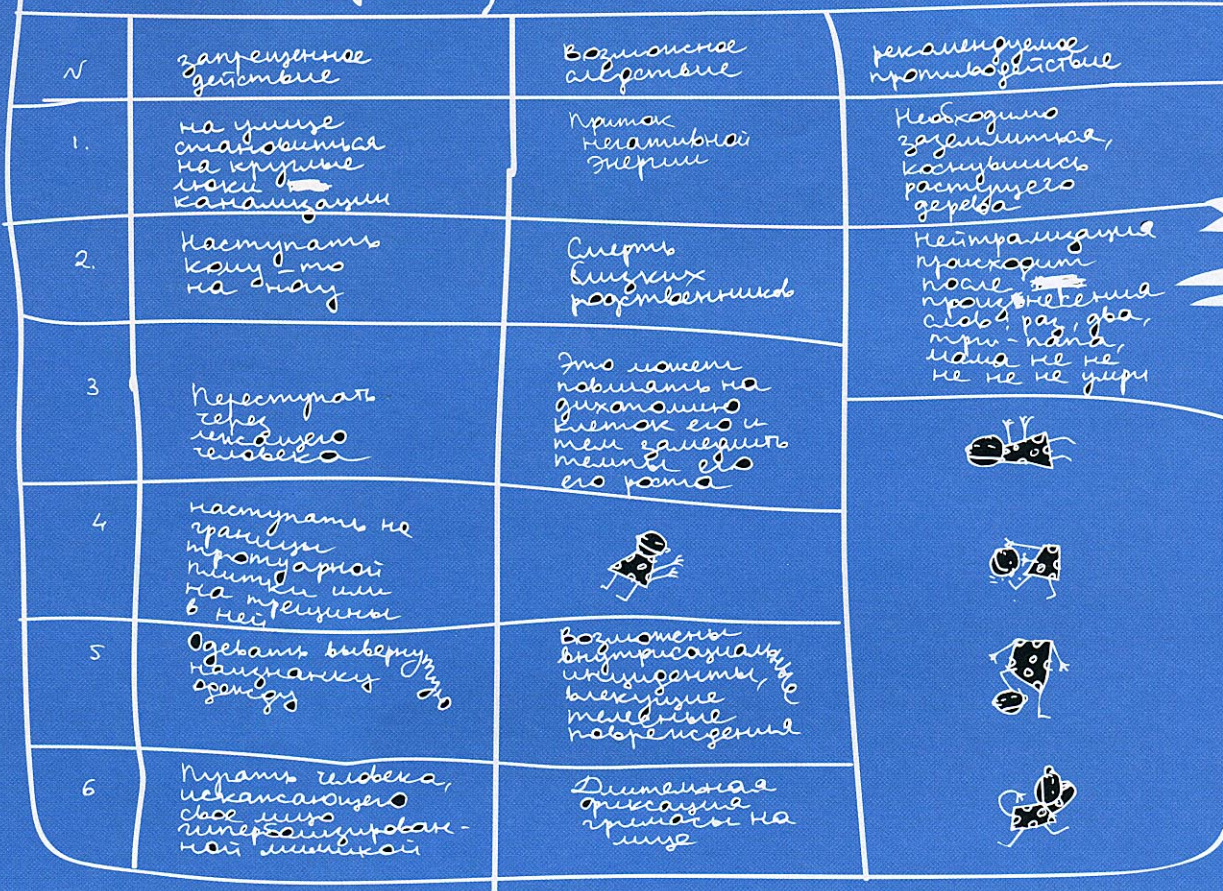 N
запрещенное
действие
возможное
следствие
рекомендуемое
противодействие
1.
на улице
становиться
на круглые
люки
канализации
Приток
негативной
энергии
Необходимо
заземлиться,
коснувшись
растущего
дерева
2.
Наступать
кому-то
на ногу
Смерть
близких
родственников
Нейтрализация
происходит
после
произнесения
слов: раз, два,
три - папа,
мама не не
не не не умри
3
Переступать
через
лежащего
человека
Это может
повлиять на
дихотомию
клеток его и
тем замедлить
темпы его
его роста
4
наступать на
границы
тротуарной
плитки или
на трещины
в ней
5
Одевать вывернутую
наизнанку
одежду
Возможены
внутрисоциальные
инциденты,
влекущие
телесные
повреждения
6
Пугать человека,
искажающего
свое лицо
гиперболизирован-
ной мимикой
Длительная
фиксация
гримасы на
лице